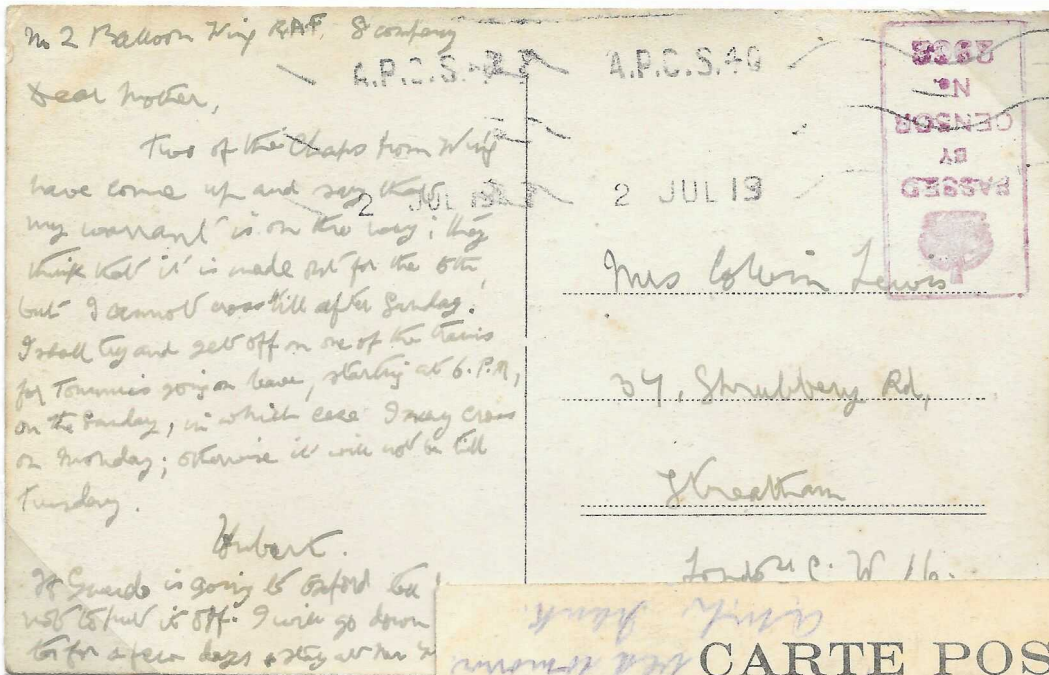 No 2 Balloon Wing R.A.F. 8 company
Dear Mother,
Two of the Chaps from Wing
have come up and say that
my warrant is on the way; they
think that it is made out for the 5th,
but I cannot cross till after Sunday.
I shall try and get off on one of the trains
for Tommies going on leave, starting at 6. P.M,
on the Sunday, in which case I may cross
on Monday; otherwise it will not be till
Tuesday.
Hubert.
If is going to Oxford tell
not to put it off. I will go down
for a few days & stay at
A.P.C.S.
A.P.C.S.40
2 JUL 19
2 JUL 19
PASSED
BY
CENSOR
No.
2962
Mrs Colvin Lewis
37, Shrubbery Rd,
Streatham
London S. W 16.
CARTE POS